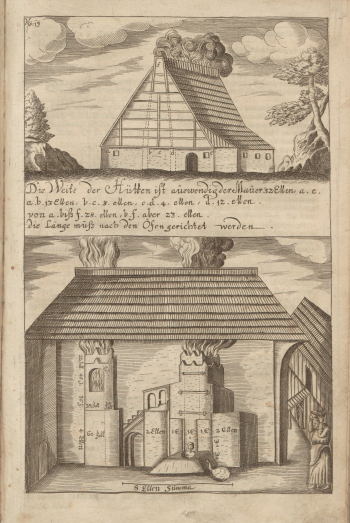 No: 19
Die Weite der Hütten ist auswendig der Mauer 32 Ellen, a. e.
a. b. 15 Ellen, b. c. 8. ellen, c. d. 4. ellen, d. 12. ellen.
von a. biß f. 28. ellen, b. f. aber 23. ellen.
die Länge muß nach den Öfen gerichtet werden.
2 Ellen
1 E
1 E
1 E
2 Ellen
8 Ellen Summa